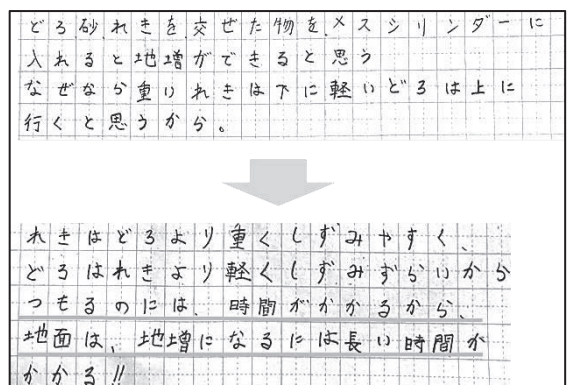 どろ砂れきを交ぜた物をメスシリンダーに
入れると地増ができると思う
なぜなら重いれきは下に軽いどろは上に
行くと思うから。
れきはどろより重くしずみやすく、
どろはれきより軽くしずみずらいから
つもるのには、時間がかかるから、
地面は、地増になるには長い時間が
かかる!!